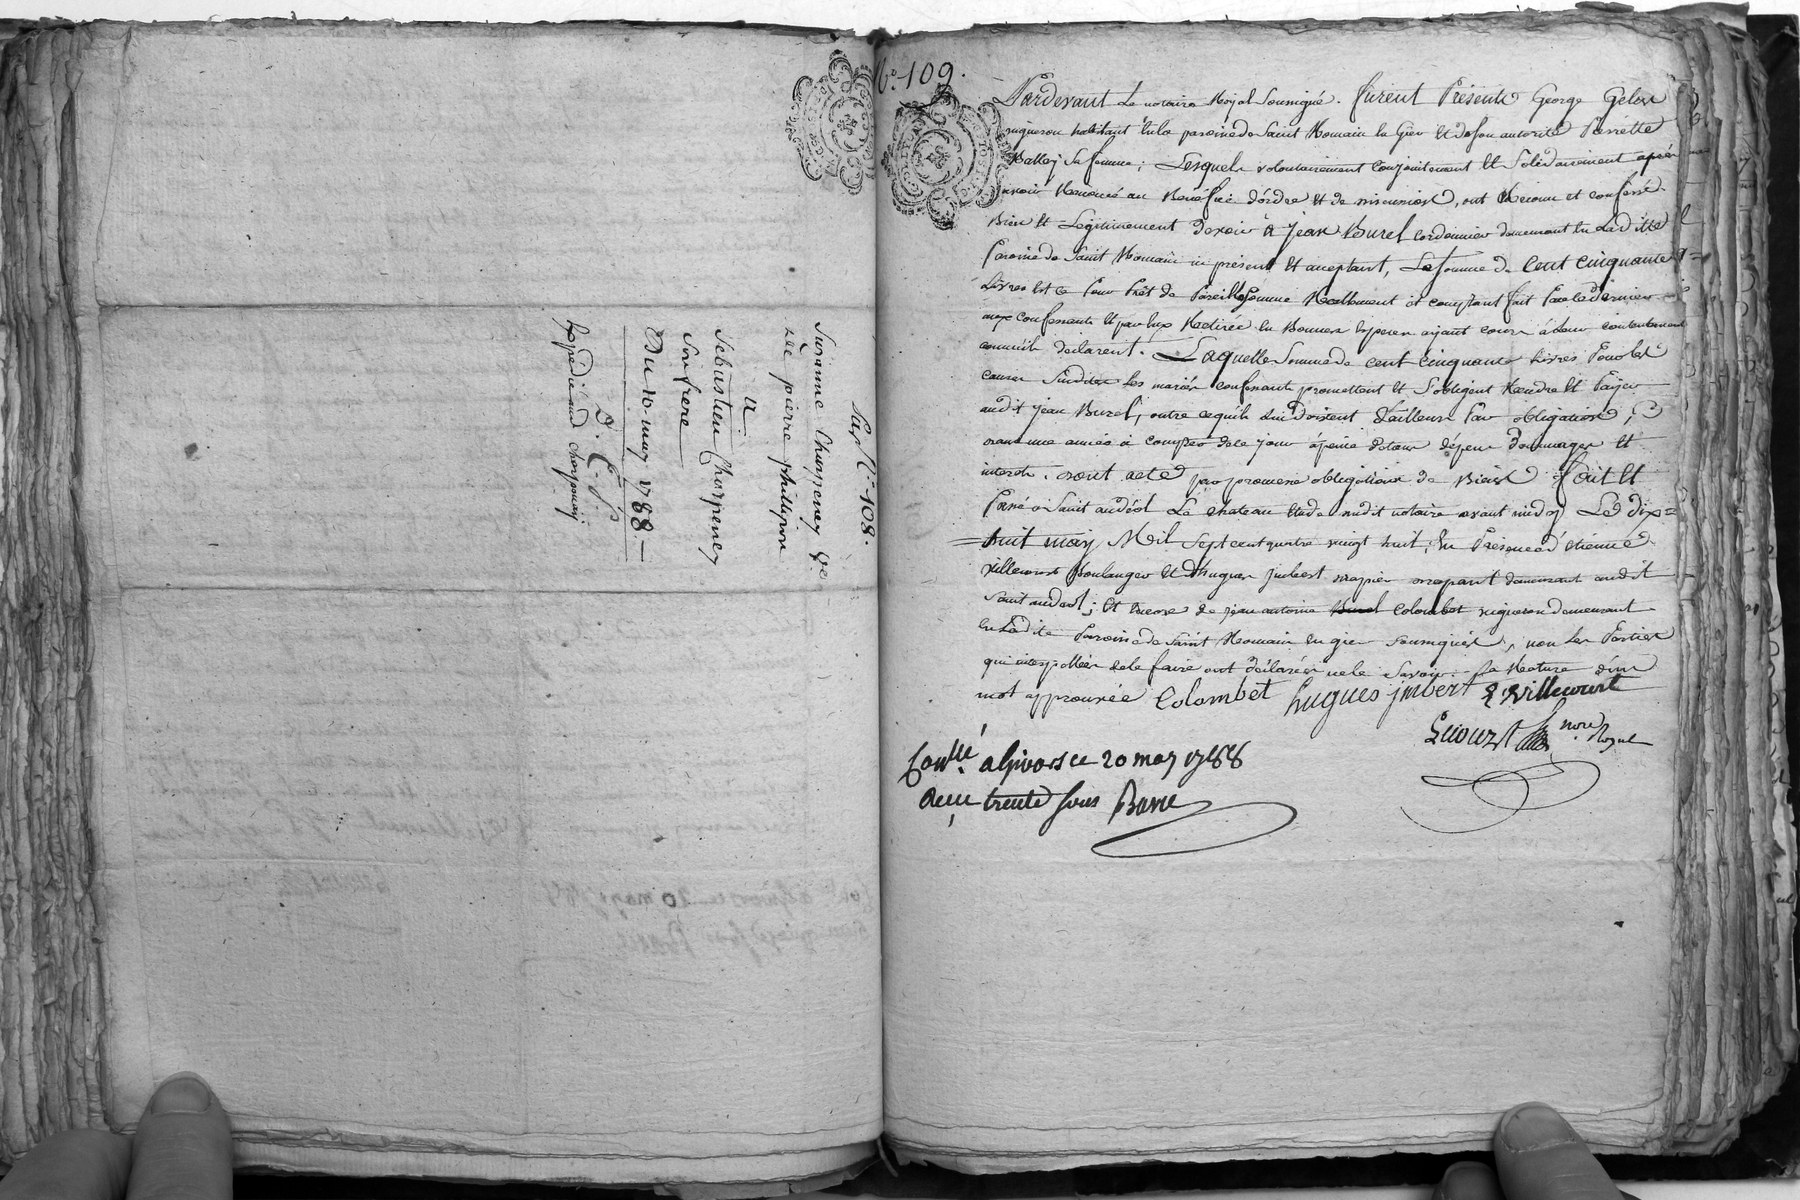 Sup. N.° 108.
Susanne Charpenay Ve
de pierre philippon
a
Sébastien Charpenay
son frere
Du 10. may 1788.
D. C. P.
Expédié aud. Charpenay
N.° 109.
Pardevant Le notaire Royal Soussigné. furent Présents George Gelas
vigneron habitant en la paroisse de Saint Romain en Gier et de son autorité Pierrette
sa femme; Lesquels volontairement conjointement et solidairement après
avoir Renoncé au Bénéfice d'ordre et de division, ont Reconnu et confessé
Bien et Légitimement devoir à Jean Burel cordonnier demeurant en Laditte
Paroisse de Saint Romain ici présent et acceptant, La somme de Cent cinquante
Livres et ce Pour Prêt de Pareille somme Réellement et comptant fait Par le dernier
aux confessants et par eux Retirée en Bonnes Espèces ayant cours à leur contentement
comme ils déclarent. Laquelle somme de cent cinquante Livres Pour les
causes susdites Les mariés confessants promettent et s'obligent Rendre et Payer
audit Jean Burel, outre ce qu'ils lui doivent d'ailleurs Par obligation,
dans une année à compter de ce jour à peine de tous dépens dommages et
interets. dont acte par promesse obligation de Biens fait et
Passé à Saint andéol Le chateau étude dudit notaire avant midy Le dix=
=huit may Mil Sept cent quatre vingt huit, En Présence d'étienne
Villecourt Boulanger et d'hugues Imbert demeurant audit
Saint andéol; et encore de jean antoine Burel Colombet vigneron demeurant
en Ladite Paroisse de Saint Romain en gier soussignés, non Les Parties
qui interpellées de le faire ont déclarés ne le Savoir. La Rature d'un
mot approuvée Colombet hugues jmbert E Villecourt
nore Royal
Conllé a Givors ce 20 may 1788
Reçu trente sous Barre